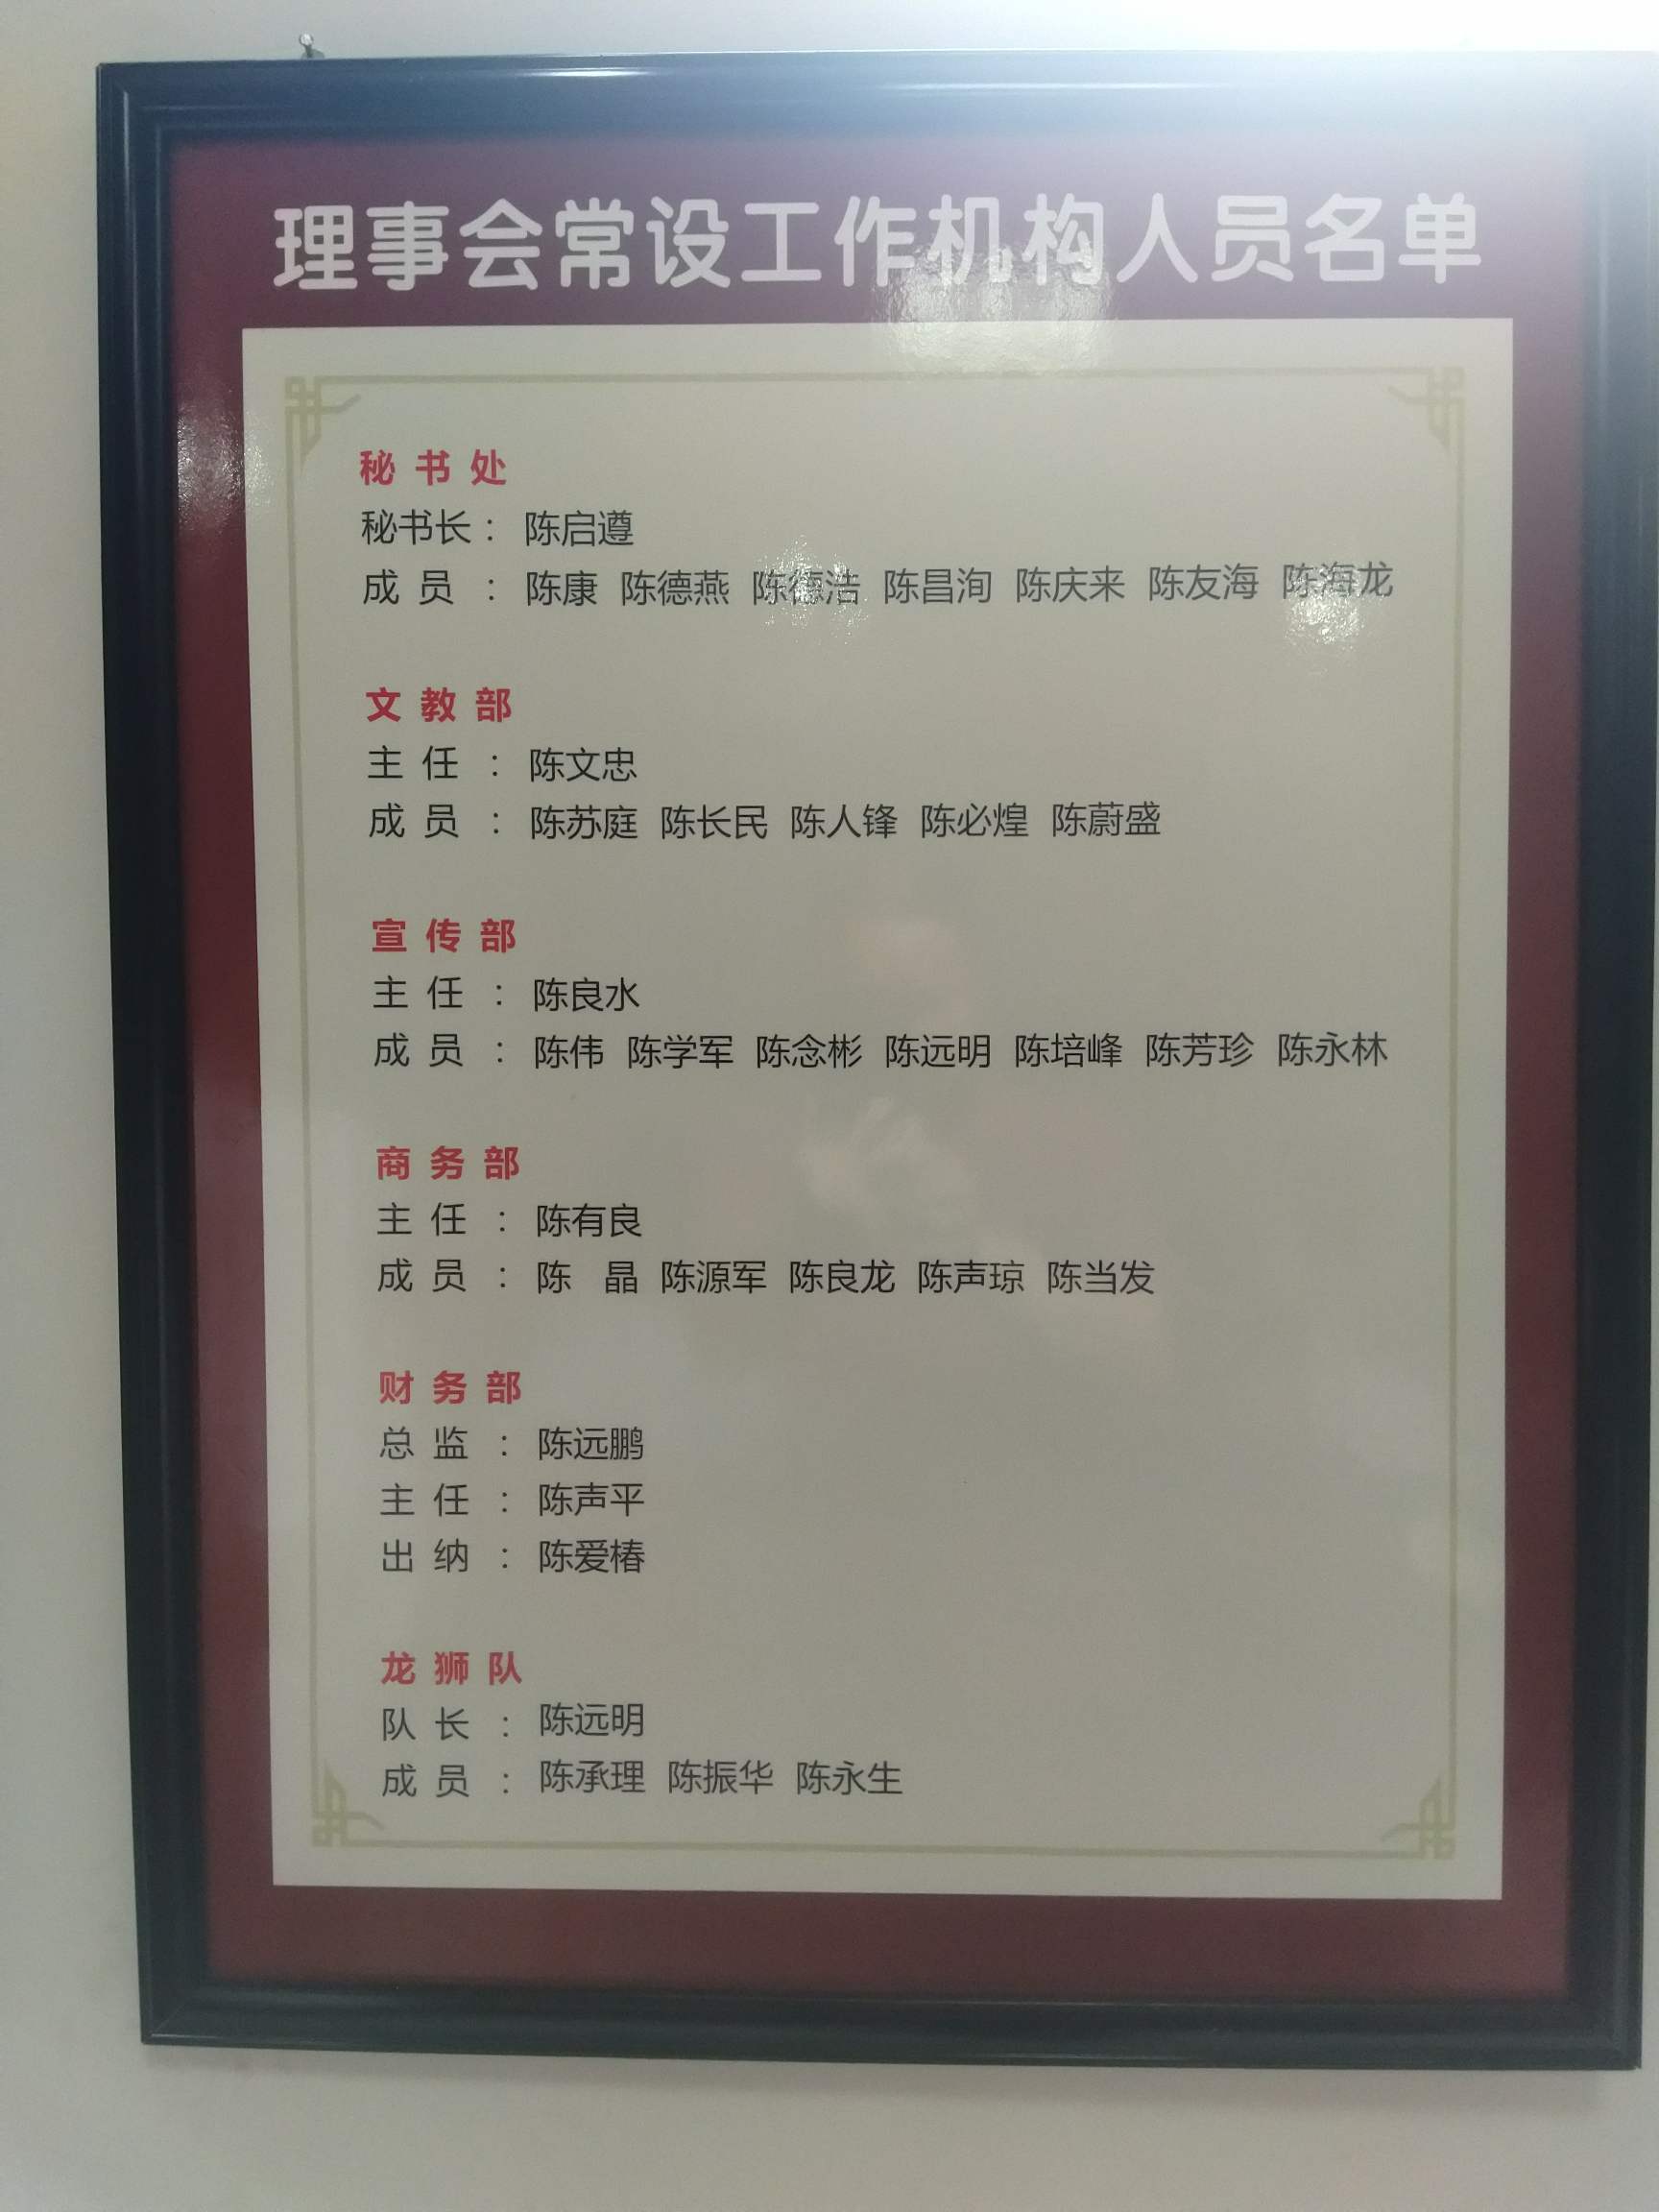 理事会常设工作机构人员名单
秘书处
秘书长：陈启遵
成员：陈康 陈德燕 陈德浩 陈昌洵 陈庆来 陈友海 陈海龙
文教部
主任：陈文忠
成员：陈苏庭 陈长民 陈人锋 陈必煌 陈蔚盛
宣传部
主任：陈良水
成员：陈伟 陈学军 陈念彬 陈远明 陈培峰 陈芳珍 陈永林
商务部
主任：陈有良
成员：陈晶 陈源军 陈良龙 陈声琼 陈当发
财务部
总监：陈远鹏
主任：陈声平
出纳：陈爱椿
龙狮队
队长：陈远明
成员：陈承理 陈振华 陈永生